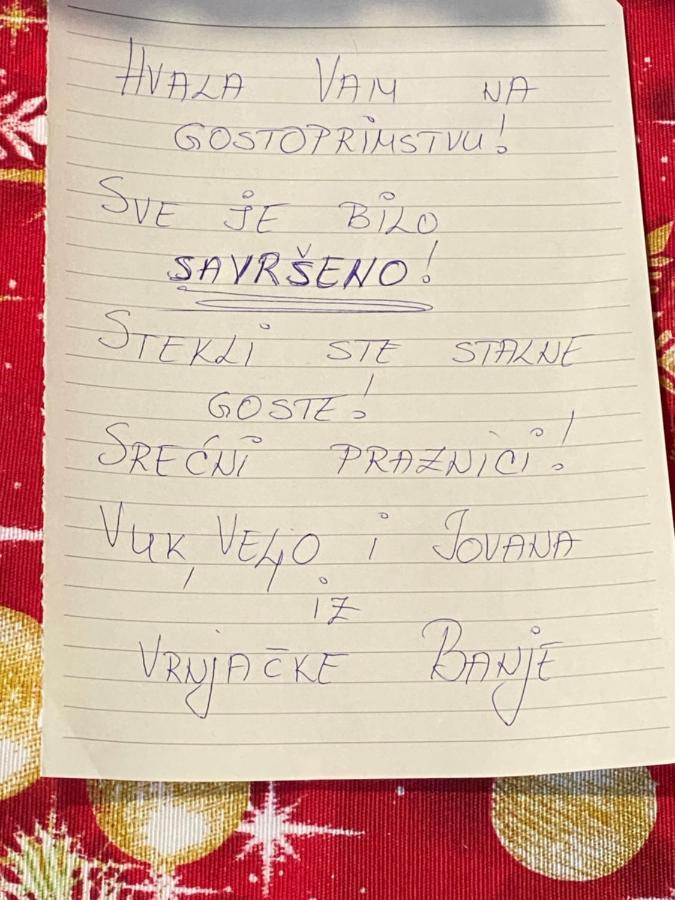 HVALA VAM NA
GOSTOPRIMSTVU!
SVE JE BILO
SAVRŠENO!
STEKLI STE STALNE
GOSTE!
SREĆNI PRAZNICI!
VUK, VELJO i JOVANA
iZ
VRNJAČKE BANJE